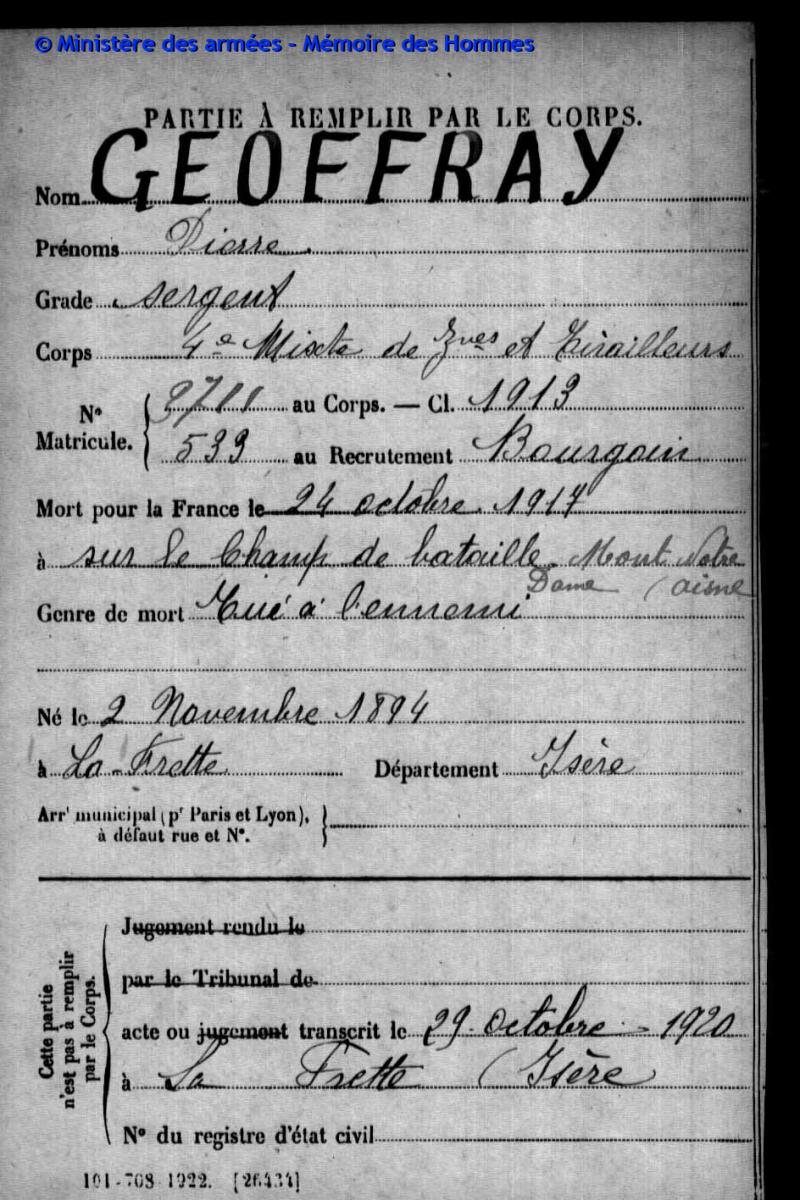 © Ministère des armées - Mémoire des Hommes
PARTIE À REMPLIR PAR LE CORPS.
Nom GEOFFRAY
Prénoms Pierre
Grade sergent
Corps 4e Mixte de Zves et Tirailleurs
N° Matricule. { 3711 au Corps. — Cl. 1913
533 au Recrutement Bourgoin
Mort pour la France le 24 octobre 1917
à sur le Champ de bataille. Mont Notre
Dame (aisne
Genre de mort Tué à l'ennemi
Né le 2 Novembre 1894
à La-Frette Département Isère
Arrt municipal (pr Paris et Lyon),
à défaut rue et N°.
Cette partie n'est pas à remplir par le Corps.
Jugement rendu le
par le Tribunal de
acte ou jugement transcrit le 29 Octobre - 1920
à La Frette (Isère
N° du registre d'état civil
101-708 1922. [26434]